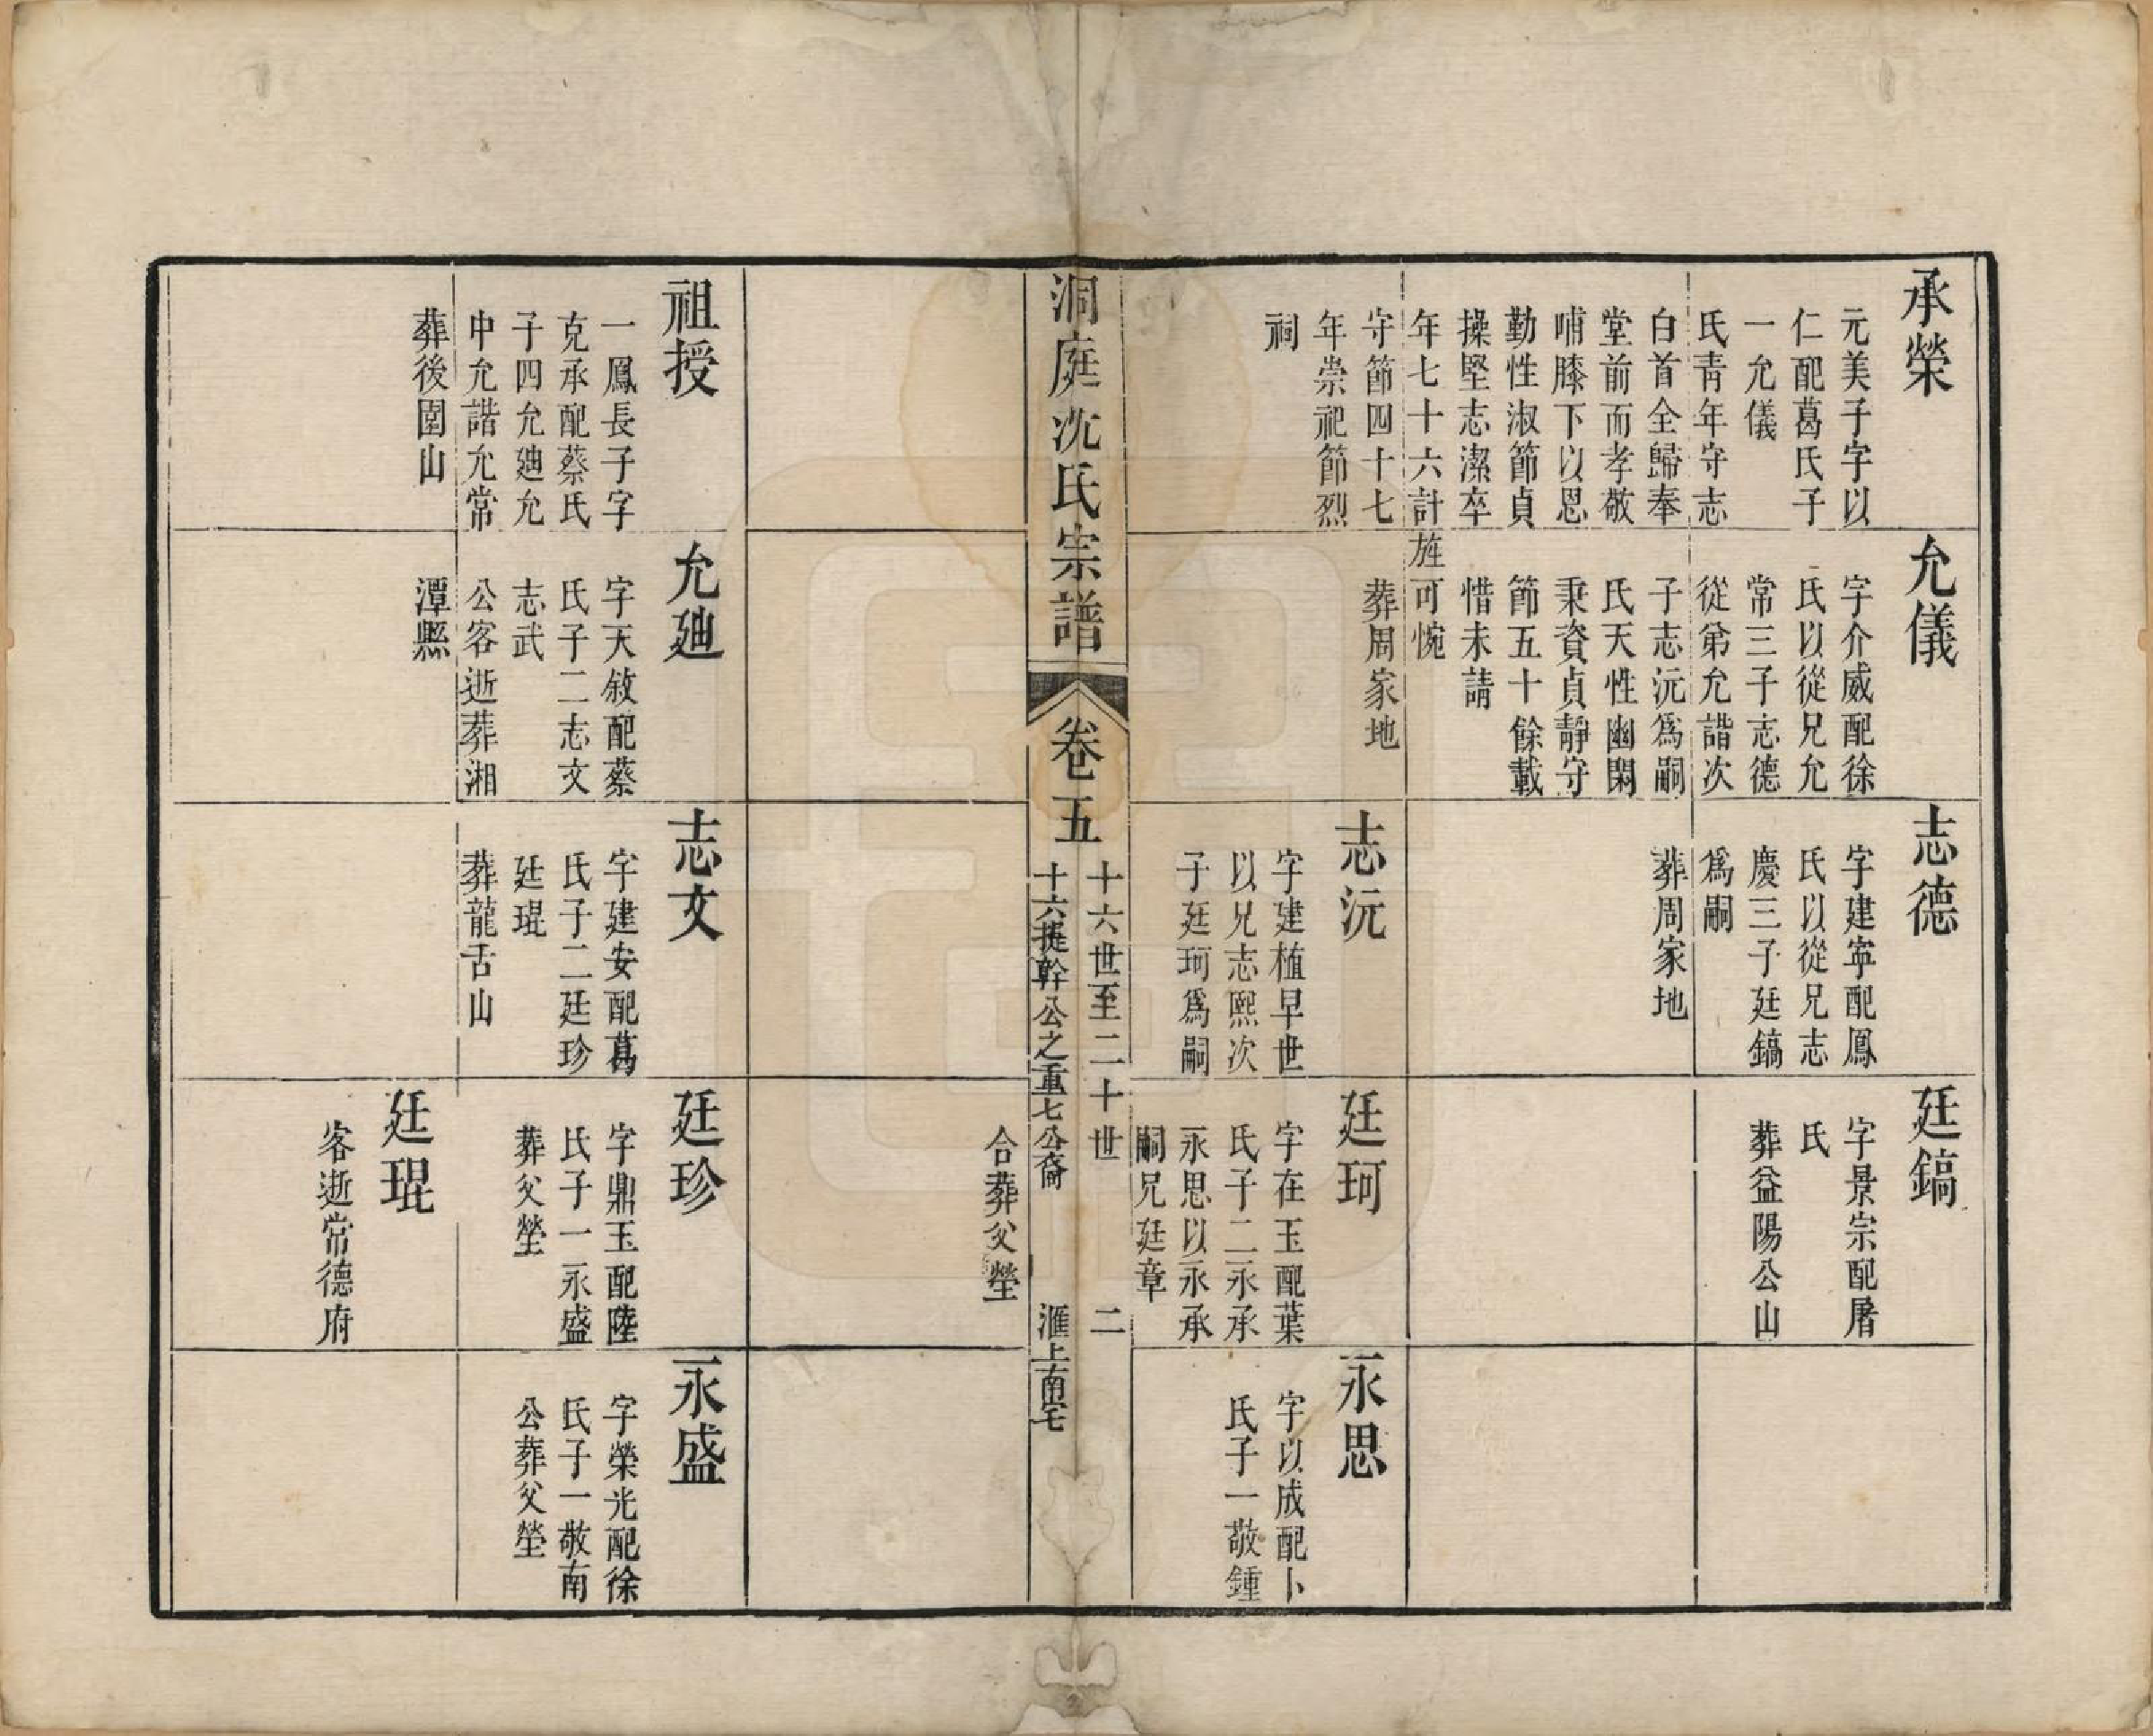 承榮
元美子字以
仁配葛氏子
一允儀
氏青年守志
白首全歸奉
堂前而孝敬
哺膝下以恩
勤性淑節貞
操堅志潔卒
年七十六計
守節四十七
年崇祀節烈
祠
允儀
字介威配徐
氏以從兄允
常三子志德
從弟允諧次
子志沅爲嗣
氏天性幽閑
秉資貞靜守
節五十餘載
惜未請
旌可惋
葬周家地
志德
字建寜配鳳
氏以從兄志
慶三子廷鎬
爲嗣
葬周家地
廷鎬
字景宗配屠
氏
葬益陽公山
志沅
字建植早世
以兄志熙次
子廷珂爲嗣
廷珂
字在玉配葉
氏子二永承
永思以永承
嗣兄廷章
合葬父塋
永思
字以成配卜
氏子一敬鍾
洞庭沈氏宗譜
卷五
十六世至二十世
十六提幹公之重七公裔
二
滙上南宅
祖授
一鳳長子字
克承配蔡氏
子四允廸允
中允諧允常
葬後圍山
允廸
字天敘配蔡
氏子二志文
志武
公客逝葬湘
潭縣
志文
字建安配葛
氏子二廷珍
廷琨
葬龍舌山
廷珍
字鼎玉配陸
氏子一永盛
葬父塋
永盛
字榮光配徐
氏子一敬南
公葬父塋
廷琨
客逝常德府